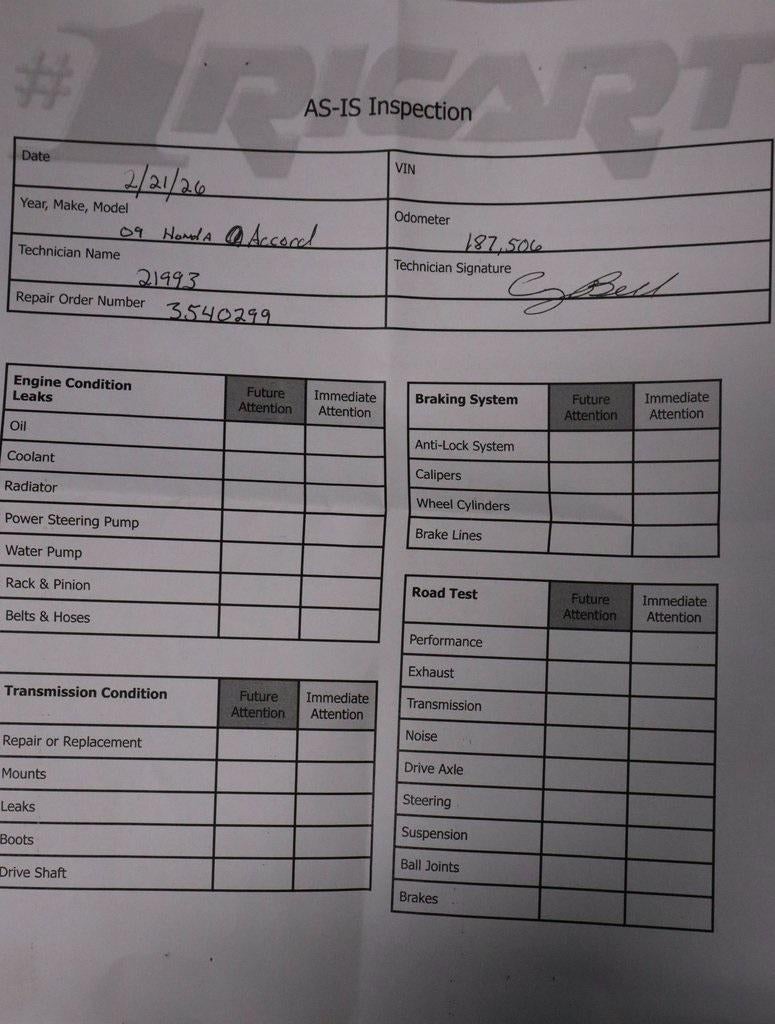 #1 RICART
AS-IS Inspection
Date 2/21/26
VIN
Year, Make, Model 09 Honda Accord
Odometer 187,506
Technician Name 21993
Technician Signature
Repair Order Number 3540299
Engine Condition Leaks Future Attention Immediate Attention
Oil
Coolant
Radiator
Power Steering Pump
Water Pump
Rack & Pinion
Belts & Hoses
Transmission Condition Future Attention Immediate Attention
Repair or Replacement
Mounts
Leaks
Boots
Drive Shaft
Braking System Future Attention Immediate Attention
Anti-Lock System
Calipers
Wheel Cylinders
Brake Lines
Road Test Future Attention Immediate Attention
Performance
Exhaust
Transmission
Noise
Drive Axle
Steering
Suspension
Ball Joints
Brakes